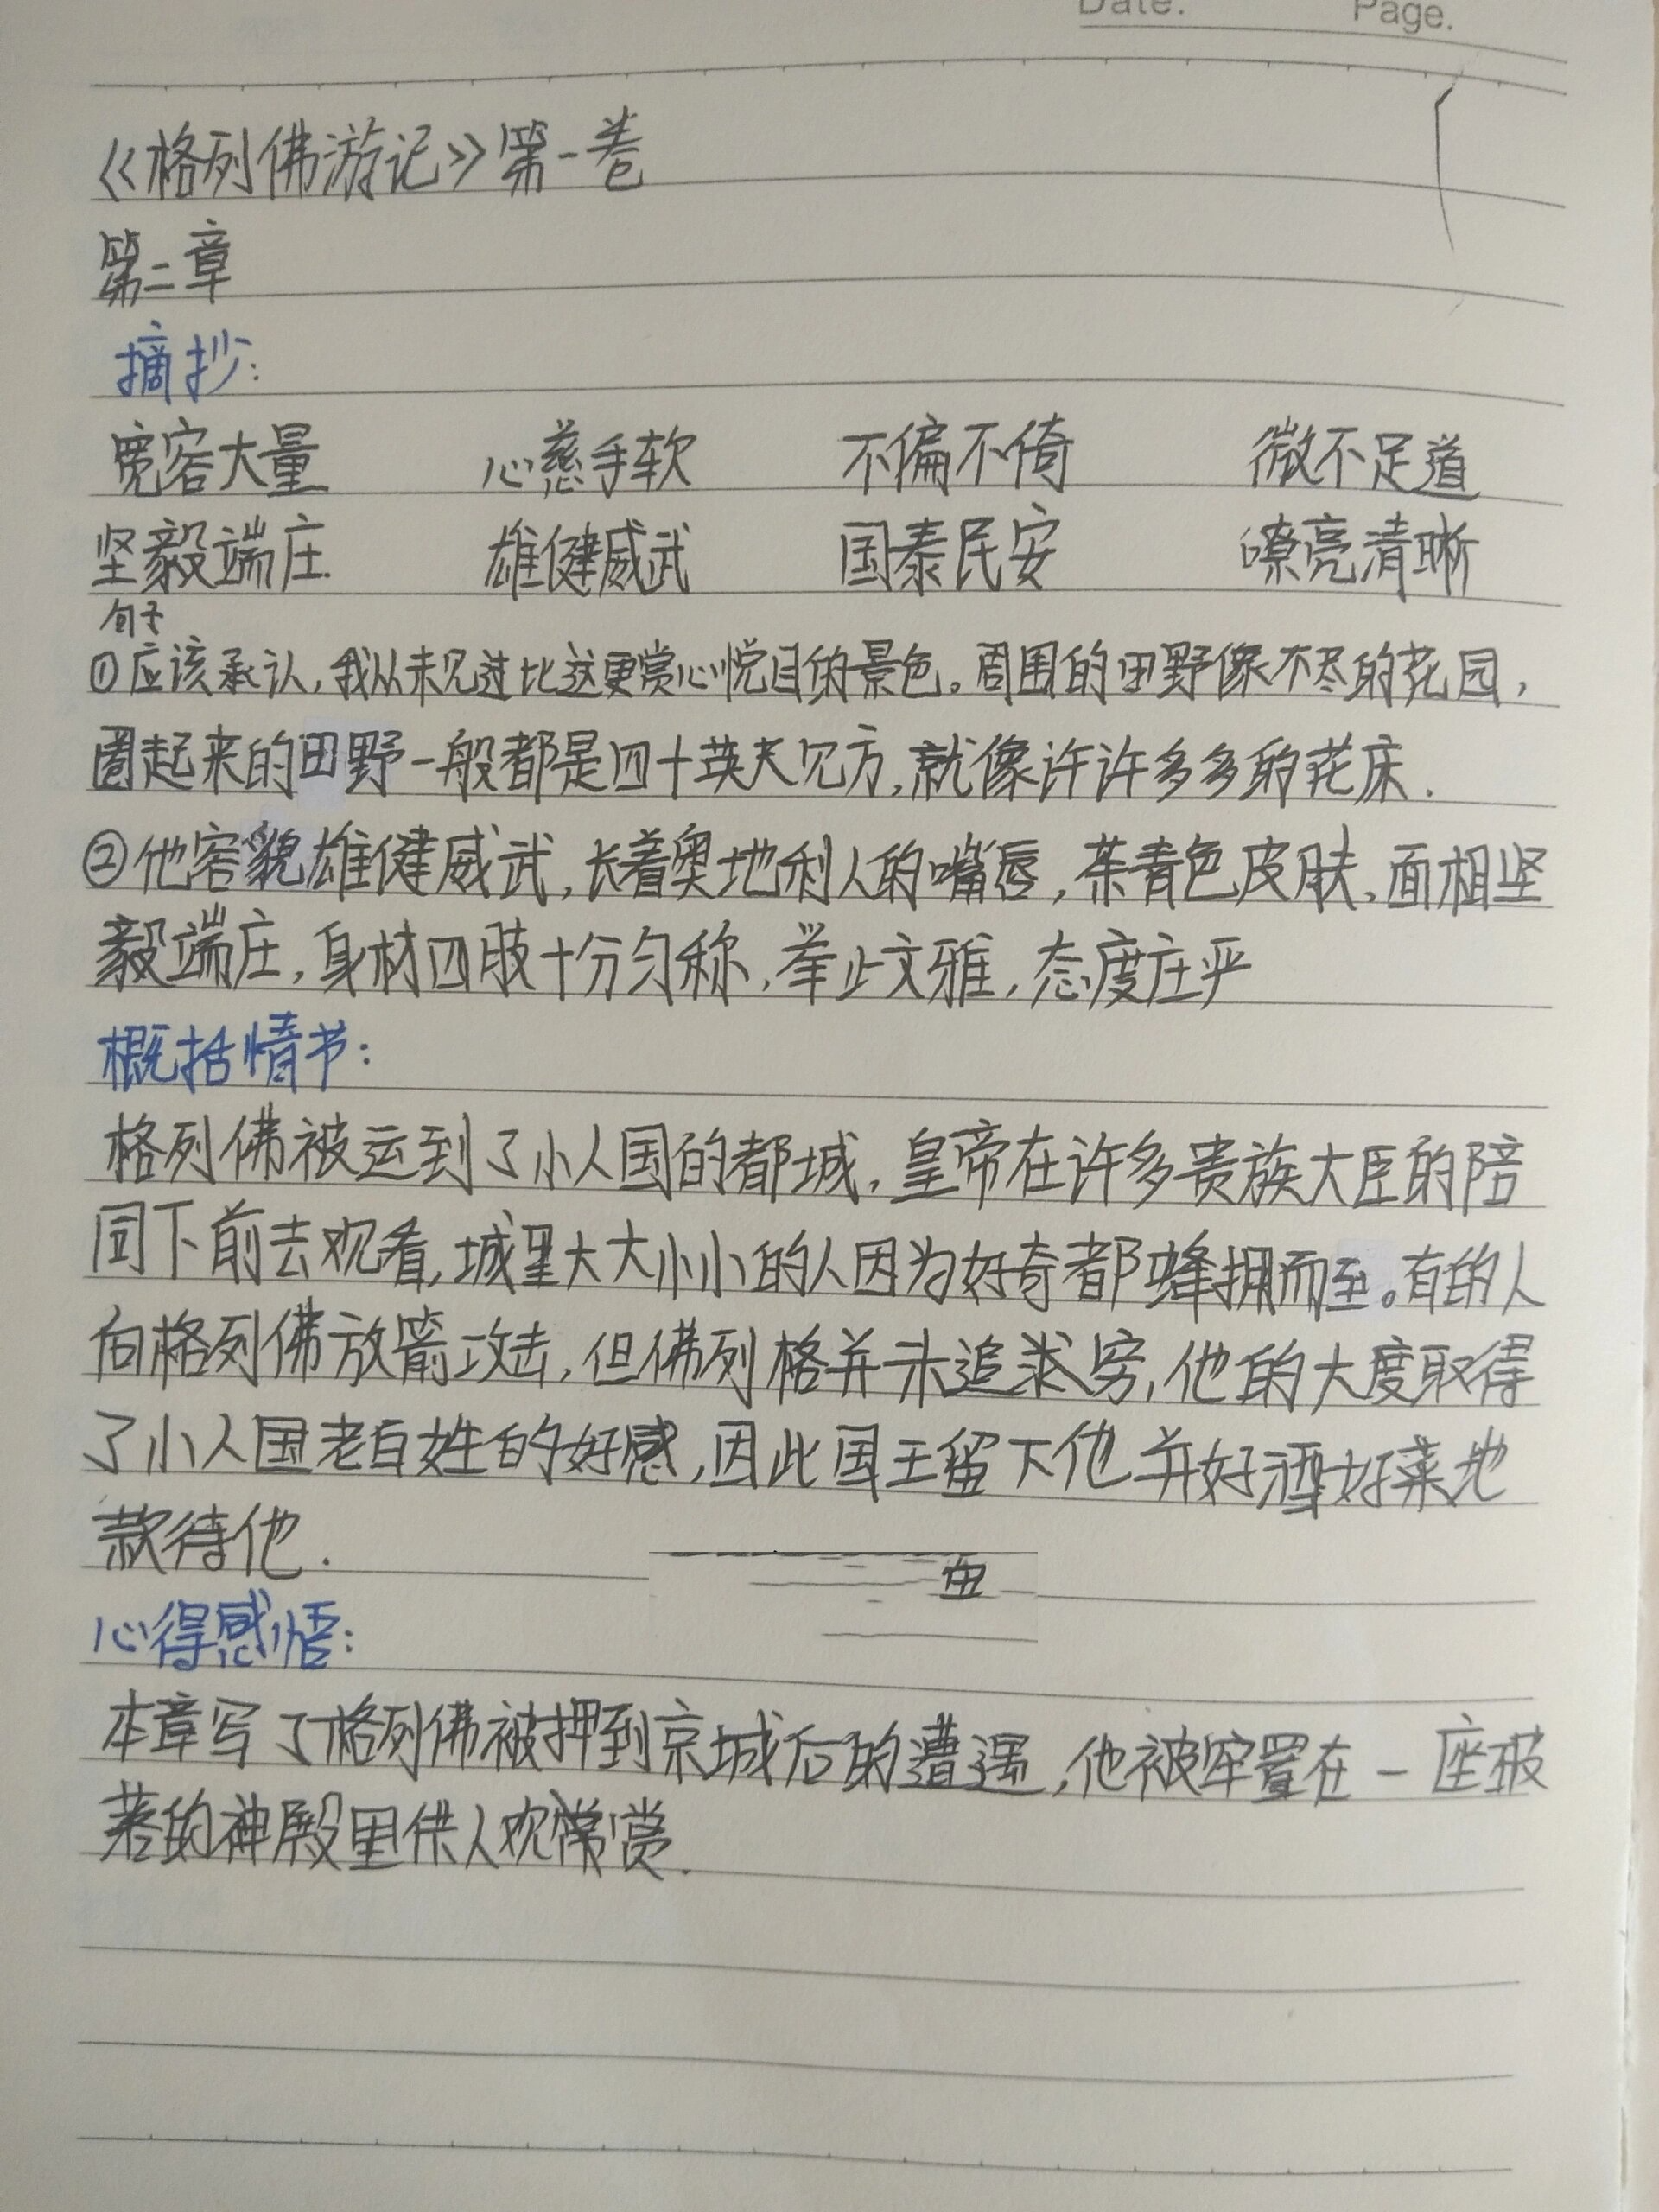 Date. Page.
《格列佛游记》第一卷
第二章
摘抄:
宽容大量 心慈手软 不偏不倚 微不足道
坚毅端庄 雄健威武 国泰民安 嘹亮清晰
句子
①应该承认,我从未见过比这更赏心悦目的景色。周围的田野像不尽的花园,
圈起来的田野一般都是四十英尺见方,就像许许多多的花床.
②他容貌雄健威武,长着奥地利人的嘴唇,茶青色皮肤,面相坚
毅端庄,身材四肢十分匀称,举止文雅,态度庄严
概括情节:
格列佛被运到了小人国的都城,皇帝在许多贵族大臣的陪
同下前去观看,城里大大小小的人因为好奇都蜂拥而至。有的人
向格列佛放箭攻击,但佛列格并未追求穷,他的大度取得
了小人国老百姓的好感,因此国王留下他并好酒好菜地
款待他.
心得感悟:
本章写了格列佛被押到京城后的遭遇,他被牢置在一座
的神殿里供人观赏.